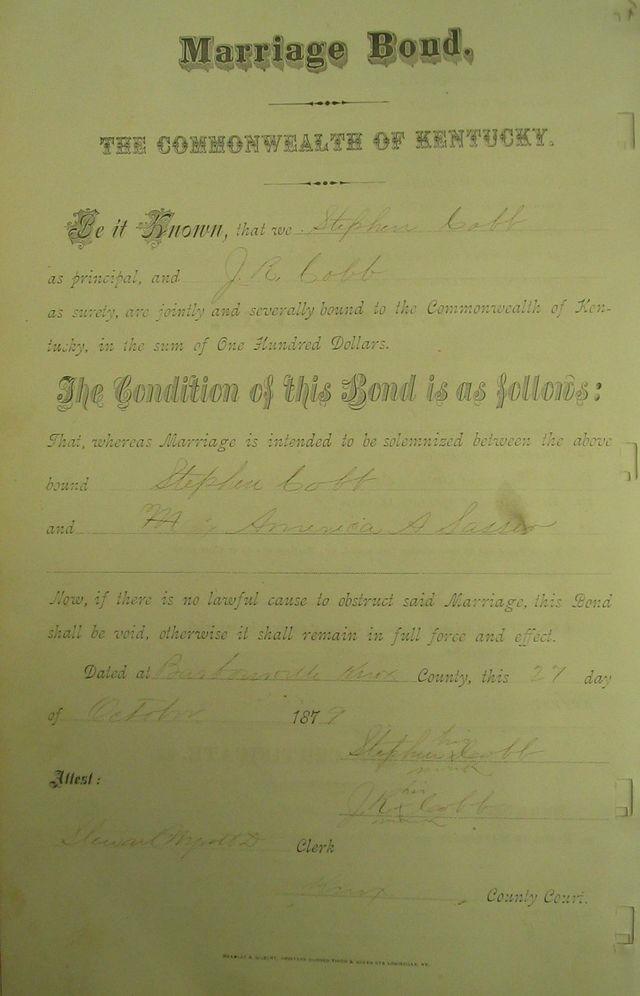 Marriage Bond.
THE COMMONWEALTH OF KENTUCKY.
Be it Known, that we Stephen Cobb
as principal, and J. R. Cobb
as surety, are jointly and severally bound to the Commonwealth of Ken-
tucky, in the sum of One Hundred Dollars.
The Condition of this Bond is as follows:
That, whereas Marriage is intended to be solemnized between the above
bound Stephen Cobb
and America A Sasser
Now, if there is no lawful cause to obstruct said Marriage, this Bond
shall be void, otherwise it shall remain in full force and effect.
Dated at Barbourville Knox County, this 27 day
of October 1879
his
Stephen x Cobb
mark
Attest:
his
J R x Cobb
mark
Clerk
Knox County Court.